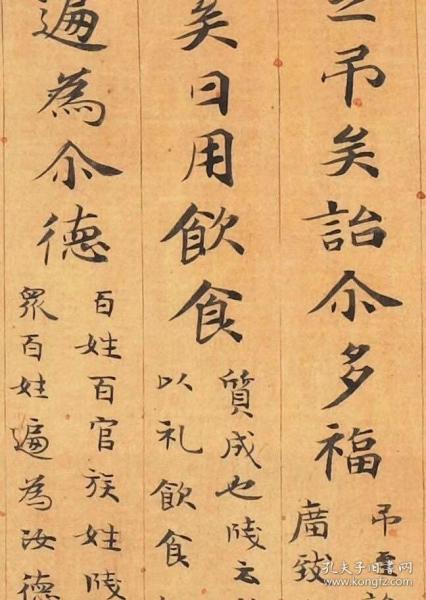 之吊矣詒尒多福
吊至
廣致
矣日用飲食
質成也牋云
以礼飲食
遍為尒德
百姓百官族姓牋
衆百姓遍為汝德
孔夫子旧书网
www.kongfz.com